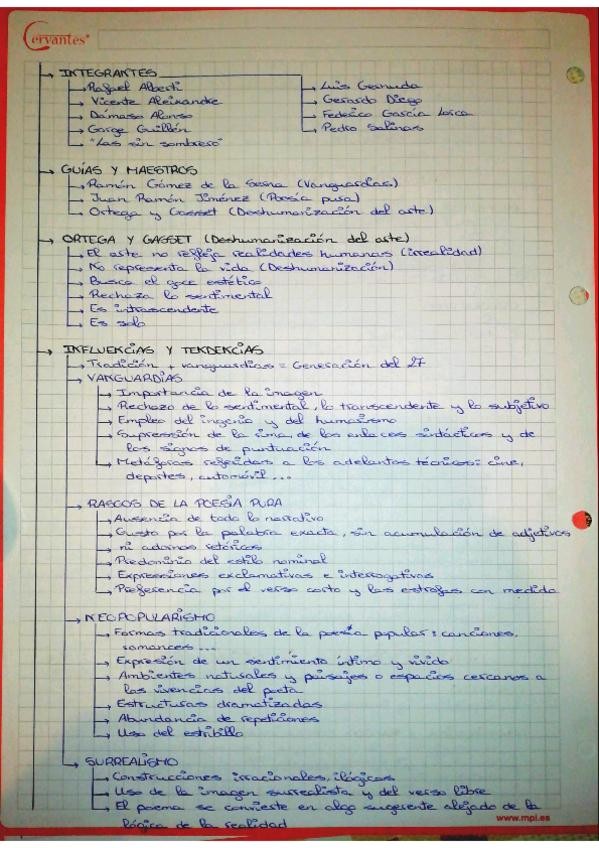 Cervantes®
INTEGRANTES
Rafael Alberti
Vicente Aleixandre
Dámaso Alonso
Gorge Guillén
"Las sin sombrero"
Luis Cernuda
Gerardo Diego
Federico García Lorca
Pedro Salinas
GUÍAS Y MAESTROS
Ramón Gómez de la Serna (Vanguardias)
Juan Ramón Jiménez (Poesía pura)
Ortega y Gasset (Deshumanización del arte)
ORTEGA Y GASSET (Deshumanización del arte)
El arte no refleja realidades humanas (irrealidad)
No representa la vida (Deshumanización)
Busca el goce estético
Rechaza lo sentimental
Es intrascendente
Es solo
INFLUENCIAS Y TENDENCIAS
Tradición + vanguardias = Generación del 27
VANGUARDIAS
Importancia de la imagen
Rechazo de lo sentimental, lo transcendente y lo subjetivo
Empleo del ingenio y del humorismo
Supresión de la rima, de los enlaces sintácticos y de
los signos de puntuación
Metáforas referidas a los adelantos técnicos: cine,
deportes, automóvil...
RASGOS DE LA POESÍA PURA
Ausencia de todo lo narrativo
Gusto por la palabra exacta, sin acumulación de adjetivos
ni adornos retóricos
Predominio del estilo nominal
Expresiones exclamativas e interrogativas
Preferencia por el verso corto y las estrofas con medida
NEOPOPULARISMO
Formas tradicionales de la poesía popular: canciones,
romances...
Expresión de un sentimiento íntimo y vivido
Ambientes naturales y paisajes o espacios cercanos a
las vivencias del poeta
Estructuras dramatizadas
Abundancia de repeticiones
Uso del estribillo
SURREALISMO
Construcciones irracionales, ilógicas
Uso de la imagen surrealista y del verso libre
El poema se convierte en algo sugerente alejado de la
lógica de la realidad
www.mpi.es